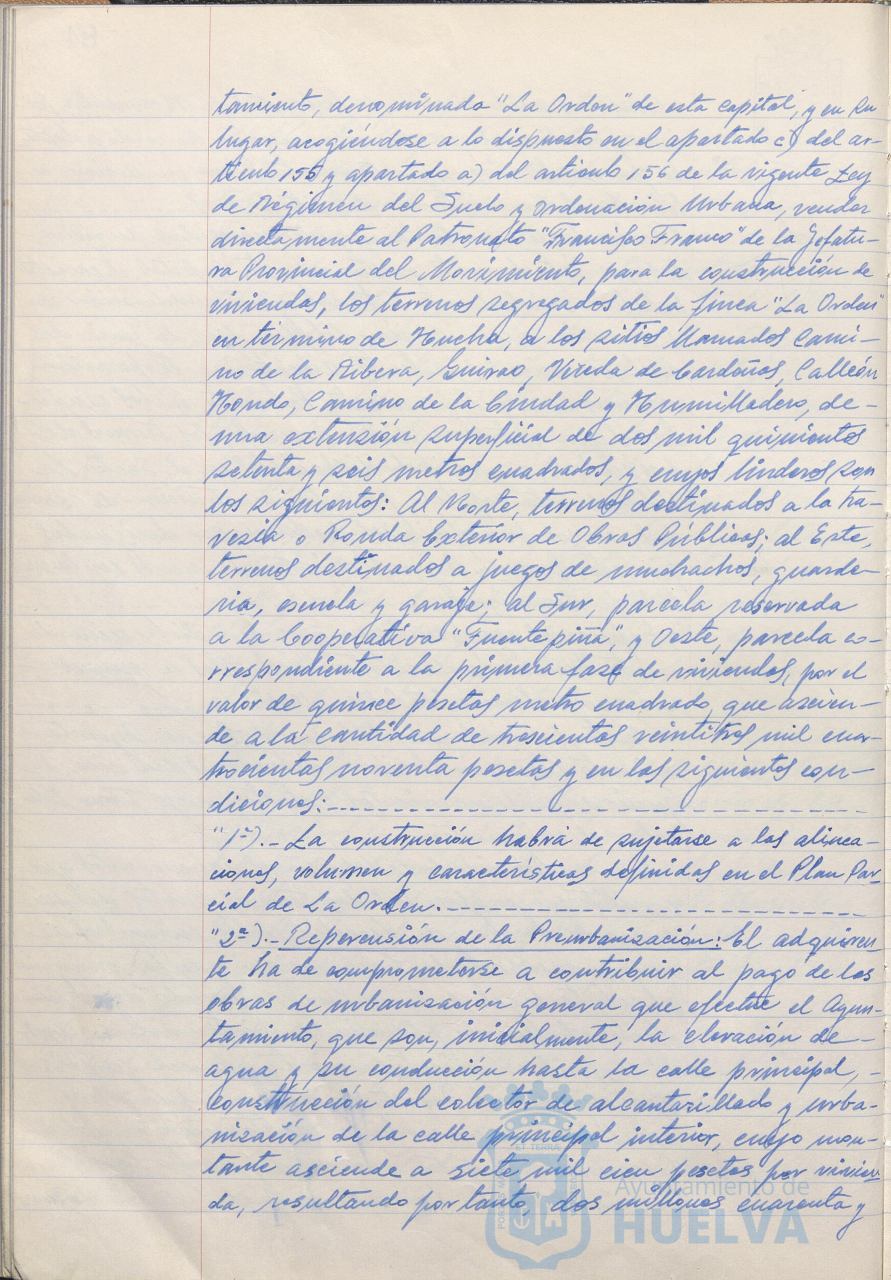 tamiento, denominada "La Orden" de esta capital, y en su
lugar, acogiéndose a lo dispuesto en el apartado c) del ar-
tículo 155 y apartado a) del artículo 156 de la vigente Ley
de Régimen del Suelo y Ordenación Urbana, vender
directamente al Patronato "Francisco Franco" de la Jefatu-
ra Provincial del Movimiento, para la construcción de
viviendas, los terrenos segregados de la finca "La Orden"
en término de Huelva, a los sitios llamados Cami-
no de la Ribera, Guirao, Vereda de Cardeñas, Callejón
Hondo, Camino de la Ciudad y Humilladero, de-
una extensión superficial de dos mil quinientos
setenta y seis metros cuadrados, y cuyos linderos son
los siguientes: Al Norte, terrenos destinados a la tra-
vesía o Ronda Exterior de Obras Públicas; al Este,
terrenos destinados a juegos de muchachos, guarde-
ría, escuela y garaje; al Sur, parcela reservada
a la Cooperativa "Fuentepiña", y Oeste, parcela co-
rrespondiente a la primera fase de viviendas, por el
valor de quince pesetas metro cuadrado, que ascien-
de a la cantidad de trescientas veintitres mil cua-
trocientas noventa pesetas y en las siguientes con-
diciones:
"1ª).- La construcción habrá de sujetarse a las alinea-
ciones, volumen y características definidas en el Plan Par-
cial de La Orden.
"2ª).- Repercusión de la Preurbanización: El adquiren-
te ha de comprometerse a contribuir al pago de las
obras de urbanización general que efectúe el Ayun-
tamiento, que son, inicialmente, la elevación de-
agua y su conducción hasta la calle principal,-
construcción del colector de alcantarillado y urba-
nización de la calle principal interior, cuyo mon-
tante asciende a siete mil cien pesetas por vivien-
da, resultando por tanto, dos millones cuarenta y
Ayuntamiento de
HUELVA